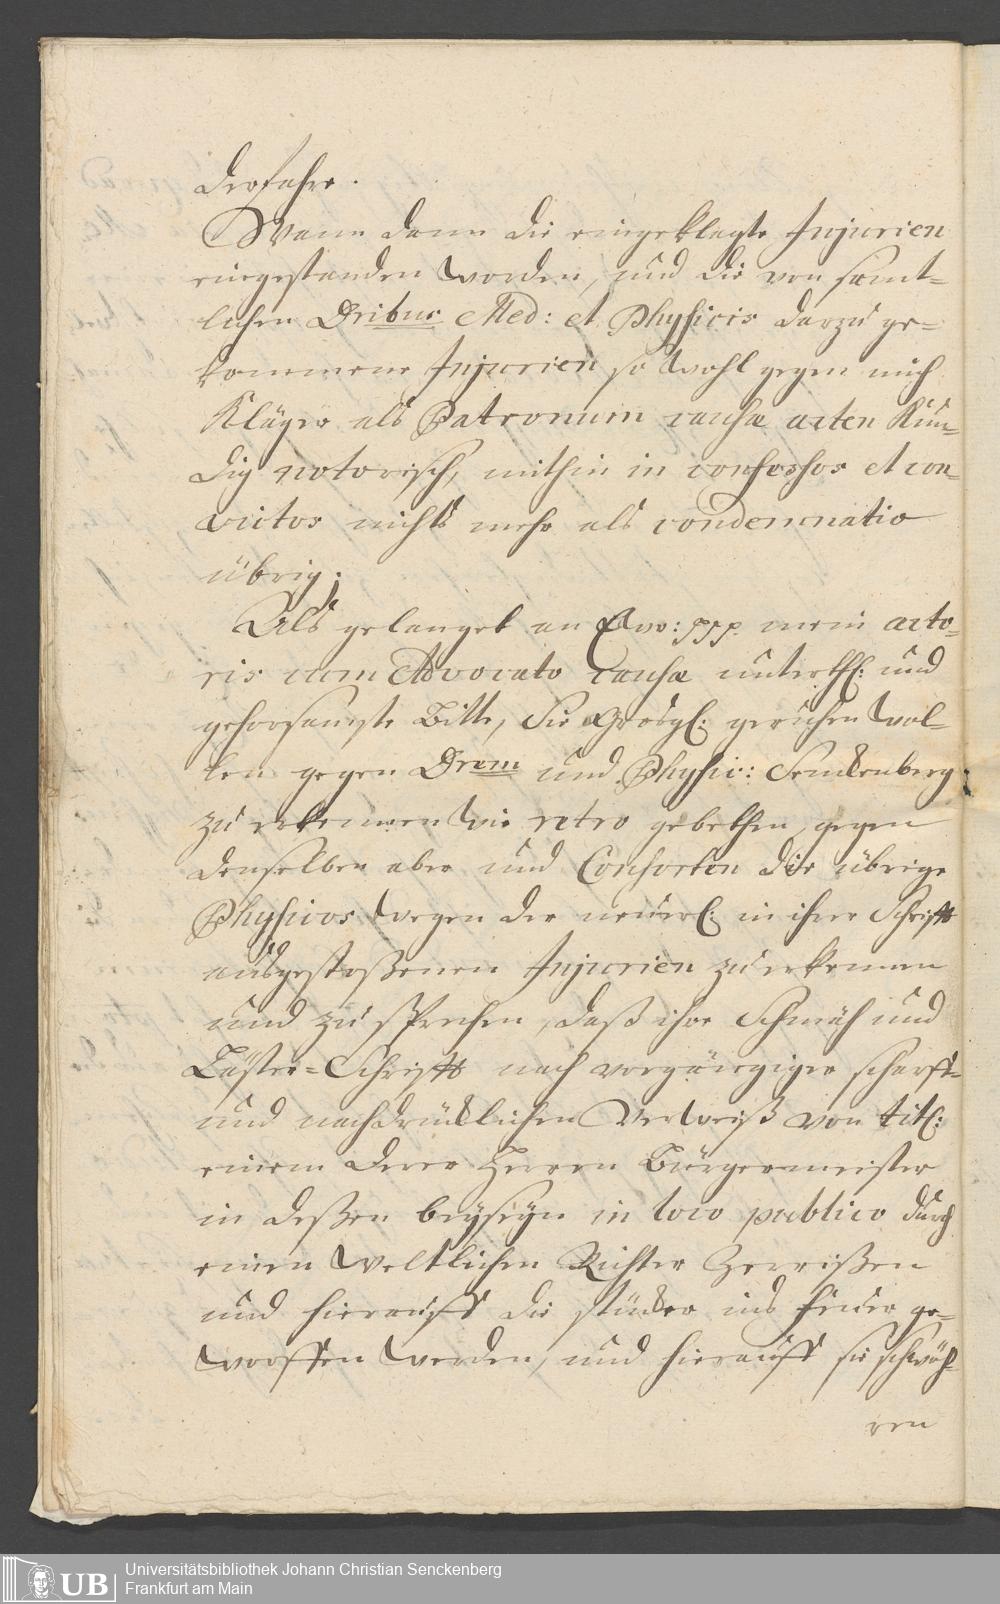 Wann dann die eingeklagte Injurien
eingestanden worden, und die von sämt-
lichen Dribus Med: et Physicis darzu ge-
kommene Injurien so wohl gegen mich
Kläger als Patronum causæ acten kün-
dig notorisch, mithin in confessos et con-
victos nichts mehr als condemnatio
übrig;
Als gelanget an Ew: ppp. mein acto-
ris cum Advocato causæ unterth: und
gehorsamste Bitte, Sie Großgl: geruhen wol-
len gegen Drem und Physic: Senckenberg
zu erkennen wie retro gebethen, gegen
denselben aber und Consorten die übrige
Physicos wegen der neuerl: in ihrer Schrifft
ausgestoßenen Injurien zu erkennen
und zu sprechen, daß ihre Schmäh und
Läster-Schrifft nach vorgängiger scharff-
und nachdrücklichen Verweiß von titl:
einem derer Herren Bürgermeister
in deßen beyseyn in loco publico durch
einen Weltlichen Richter Zerrißen
und hierauff die stücker ins feuer ge-
worffen werden, und hierauff sie
ren
Universitätsbibliothek Johann Christian Senckenberg
Frankfurt am Main
UB